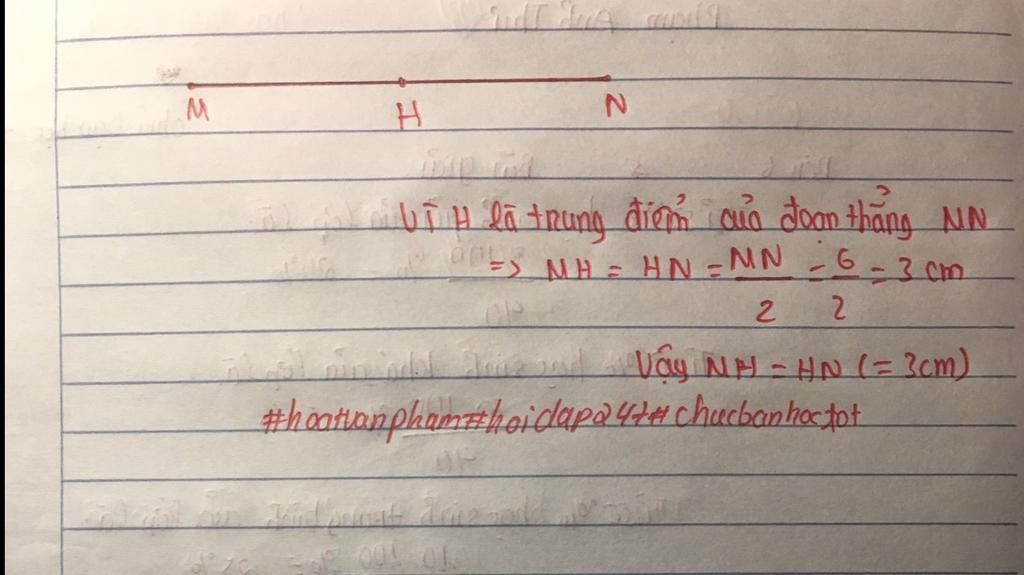 M H N
Vì H là trung điểm của đoạn thẳng MN
=> MH = HN = MN/2 = 6/2 = 3 cm
Vậy MH = HN (= 3cm)
#hoatuanpham#hoidap247#chucbanhoctot